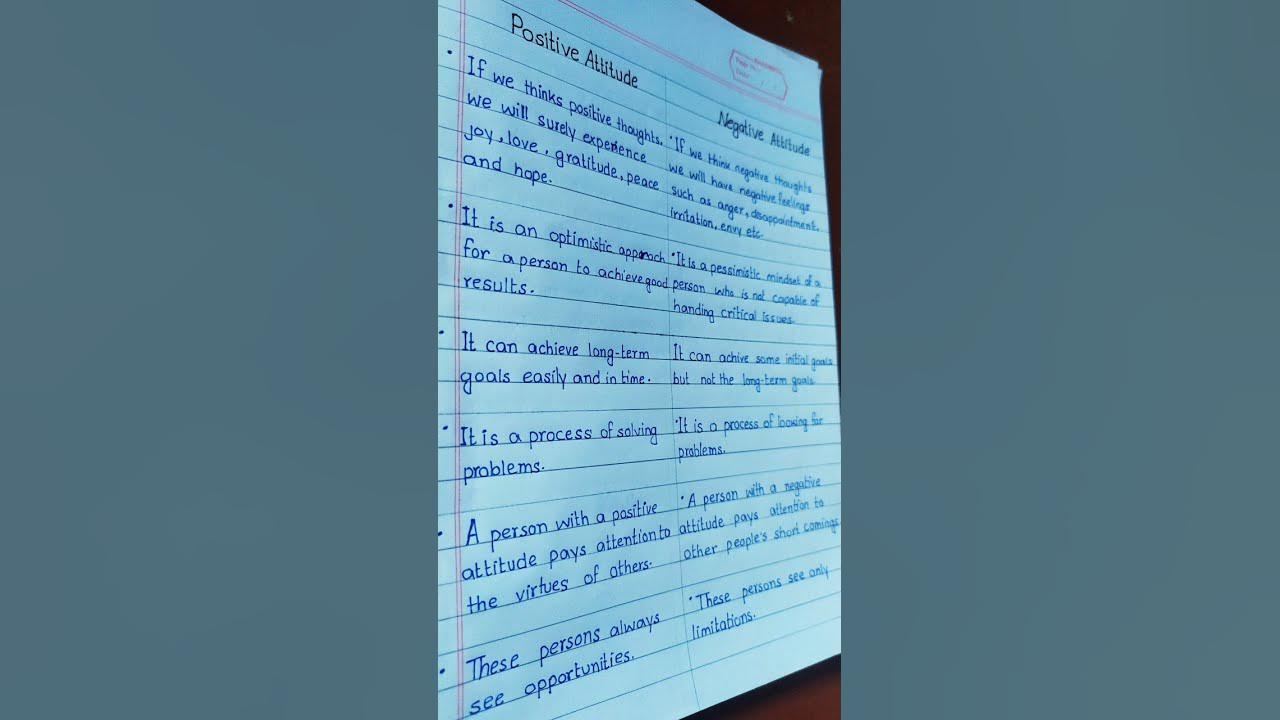 Positive Attitude
• If we thinks positive thoughts,
we will surely experience
joy, love, gratitude, peace
and hope.
• It is an optimistic approach
for a person to achieve good
results.
• It can achieve long-term
goals easily and in time.
• It is a process of solving
problems.
• A person with a positive
attitude pays attention to
the virtues of others.
• These persons always
see opportunities.
Negative Attitude
• If we think negative thoughts
we will have negative feelings
such as anger, disappointment,
irritation, envy etc.
• It is a pessimistic mindset of a
person who is not capable of
handing critical issues.
It can achive some initial goals
but not the long-term goals.
• It is a process of looking for
problems.
• A person with a negative
attitude pays attention to
other people's short comings
• These persons see only
limitations.